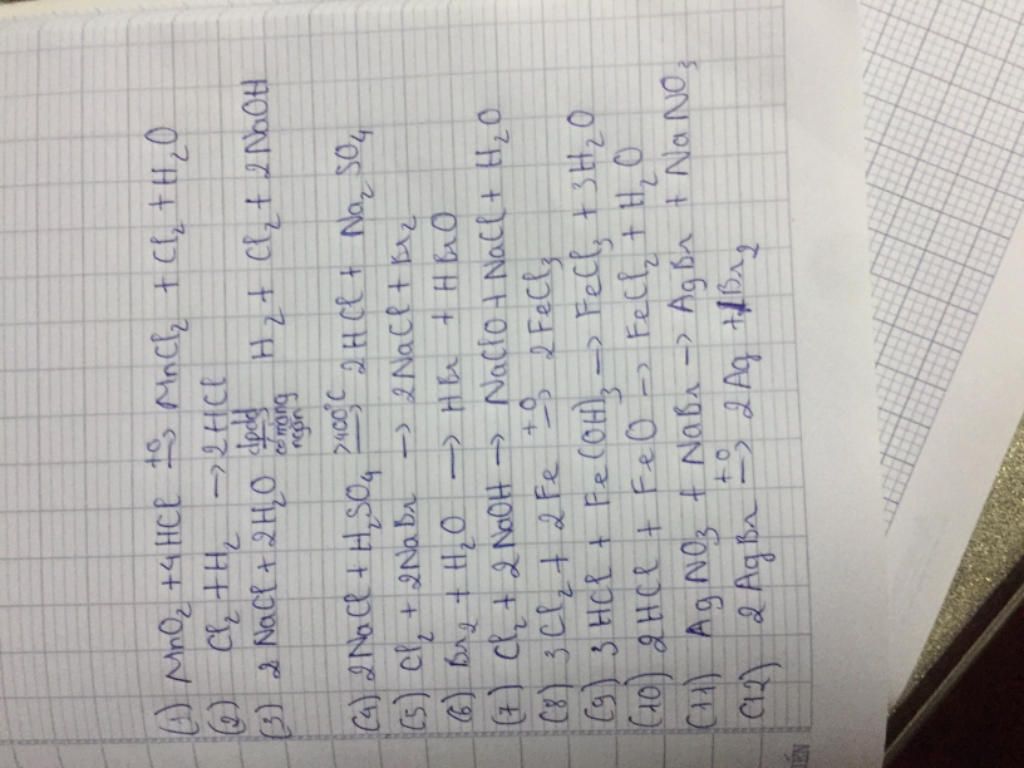 (1) MnO₂ + 4HCl —t°→ MnCl₂ + Cl₂ + H₂O
(2) Cl₂ + H₂ → 2HCl
(3) 2NaCl + 2H₂O —đpdd, có màng ngăn→ H₂ + Cl₂ + 2NaOH
(4) 2NaCl + H₂SO₄ —>400°C→ 2HCl + Na₂SO₄
(5) Cl₂ + 2NaBr → 2NaCl + Br₂
(6) Br₂ + H₂O → HBr + HBrO
(7) Cl₂ + 2NaOH → NaClO + NaCl + H₂O
(8) 3Cl₂ + 2Fe —t°→ 2FeCl₃
(9) 3HCl + Fe(OH)₃ → FeCl₃ + 3H₂O
(10) 2HCl + FeO → FeCl₂ + H₂O
(11) AgNO₃ + NaBr → AgBr + NaNO₃
(12) 2AgBr —t°→ 2Ag + Br₂